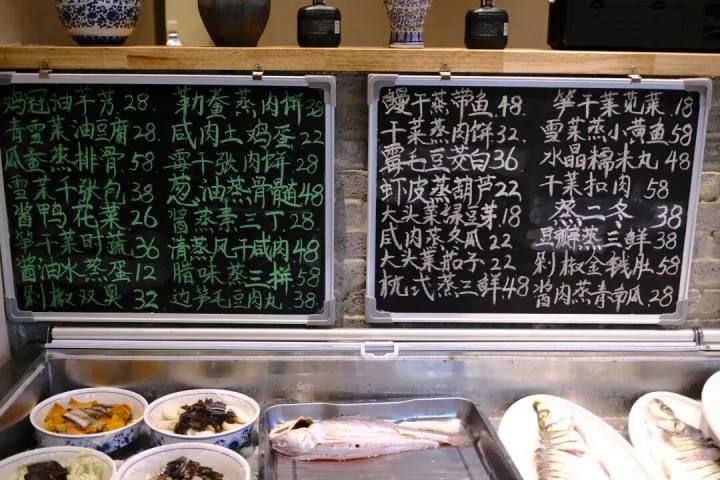 鸡冠油芋艿28
雪菜油豆腐28
瓜鲞蒸排骨58
雪菜千张包38
酱鸭花菜26
笋干菜时蔬36
酱油水蒸蛋12
剁椒双臭32
勒鲞蒸肉饼38
咸肉土鸡蛋22
霉千张肉饼28
葱油蒸骨髓48
酱蒸素三丁28
清蒸风干咸肉48
腊味蒸三拼58
边笋毛豆肉丸38
鳗干蒸带鱼48
干菜蒸肉饼32
霉毛豆茭白36
虾皮蒸葫芦22
大头菜绿豆芽18
咸肉蒸冬瓜22
大头菜茄子22
杭式蒸三鲜48
笋干菜苋菜18
雪菜蒸小黄鱼58
水晶糯米丸48
干菜扣肉58
蒸二冬38
豆瓣蒸三鲜38
剁椒金钱肚58
酱肉蒸青南瓜28